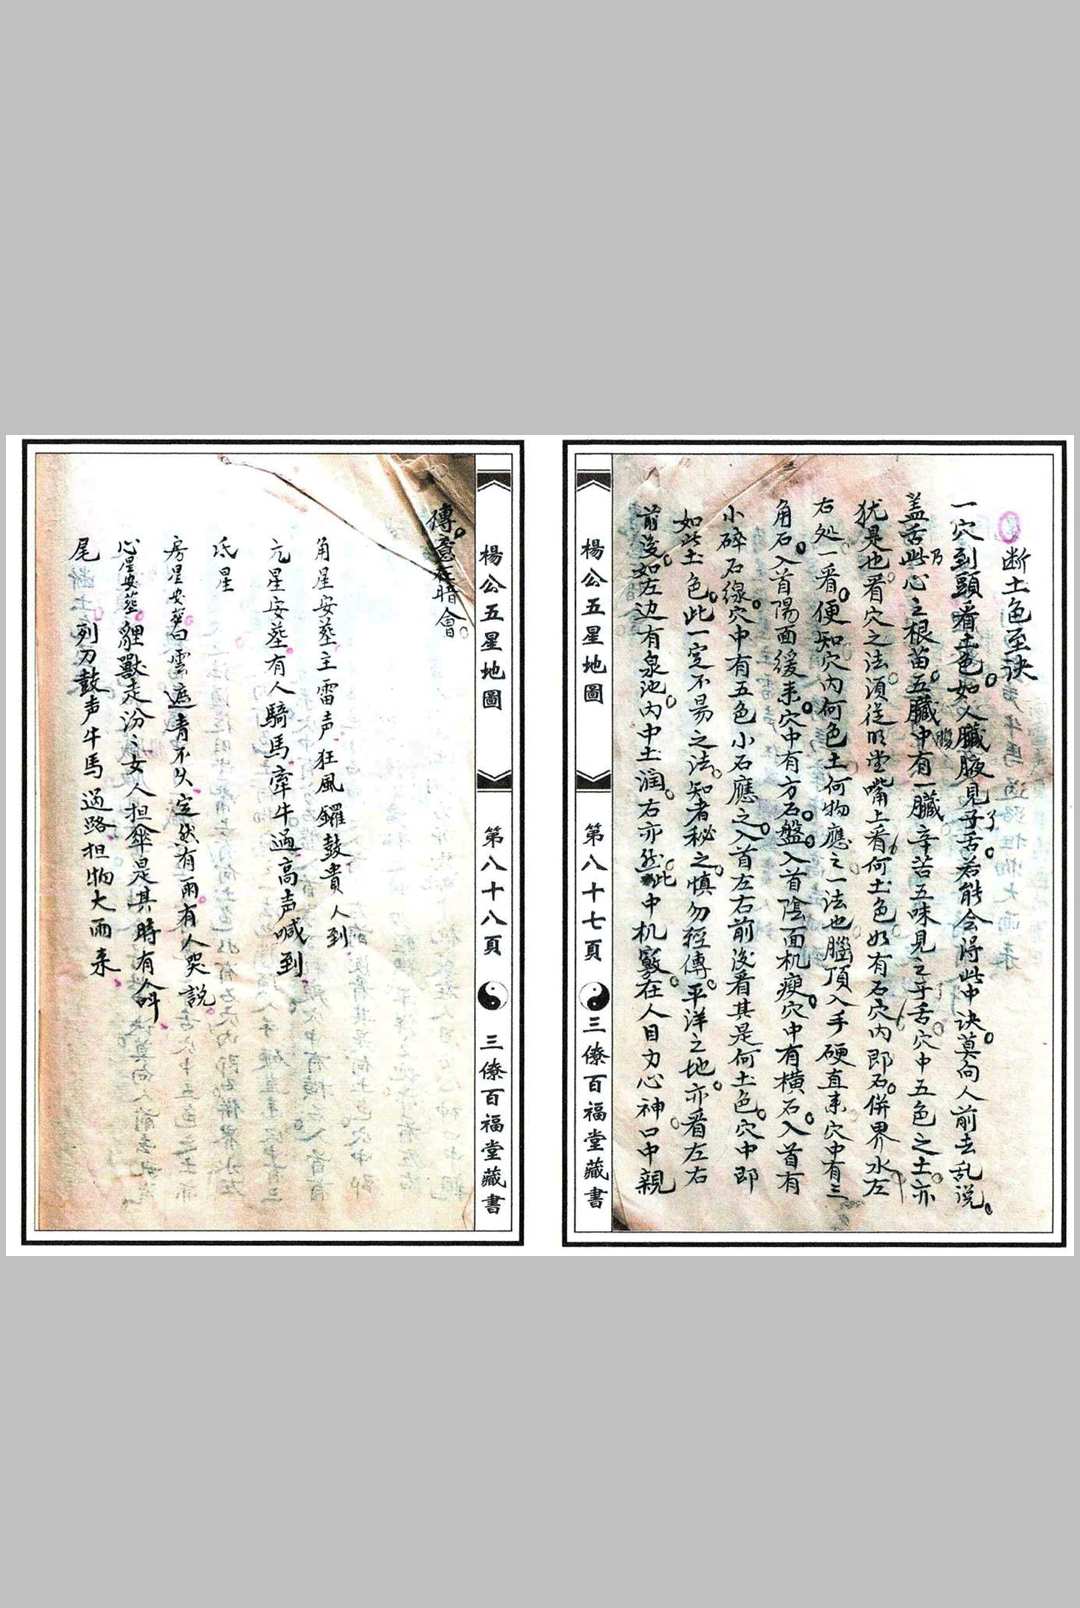 断土色至诀
一穴到頭看土色如人臟腋見乎舌若能会得此中诀莫向人前去乱说
盖舌乃此心之根苗五臟中有一臟辛苦五味見之乎舌穴中五色之土亦
犹是也看穴之法須從明堂嘴上看何土色如有石穴内即石併界水左
右処一看便知穴内何色土何物應之一法也腦頂入手硬直来穴中有三
角石入首陽面緩来穴中有方石盤入首陰面机瘦穴中有横石入首有
小碎石線穴中有五色小石應之入首左右前後看其是何土色穴中即
如此土色此一定不易之法知者秘之慎勿轻傳平洋之地亦看左右
前後如左边有泉池内中土潤右亦然此中机竅在人目力心神口中親
楊公五星地圖
第八十七頁
三僚百福堂藏書
楊公五星地圖
第八十八頁
三僚百福堂藏書
傳意在暗會
角星安葬主雷声狂風鑼鼓貴人到
亢星安葬有人騎馬牽牛過高声喊到
氐星
房星安葬白雲遮青不久定然有雨有人哭說
心星安葬貍獸走汾之女人担傘是其時有人叫
尾 列刀鼓声牛馬過路担物大雨来